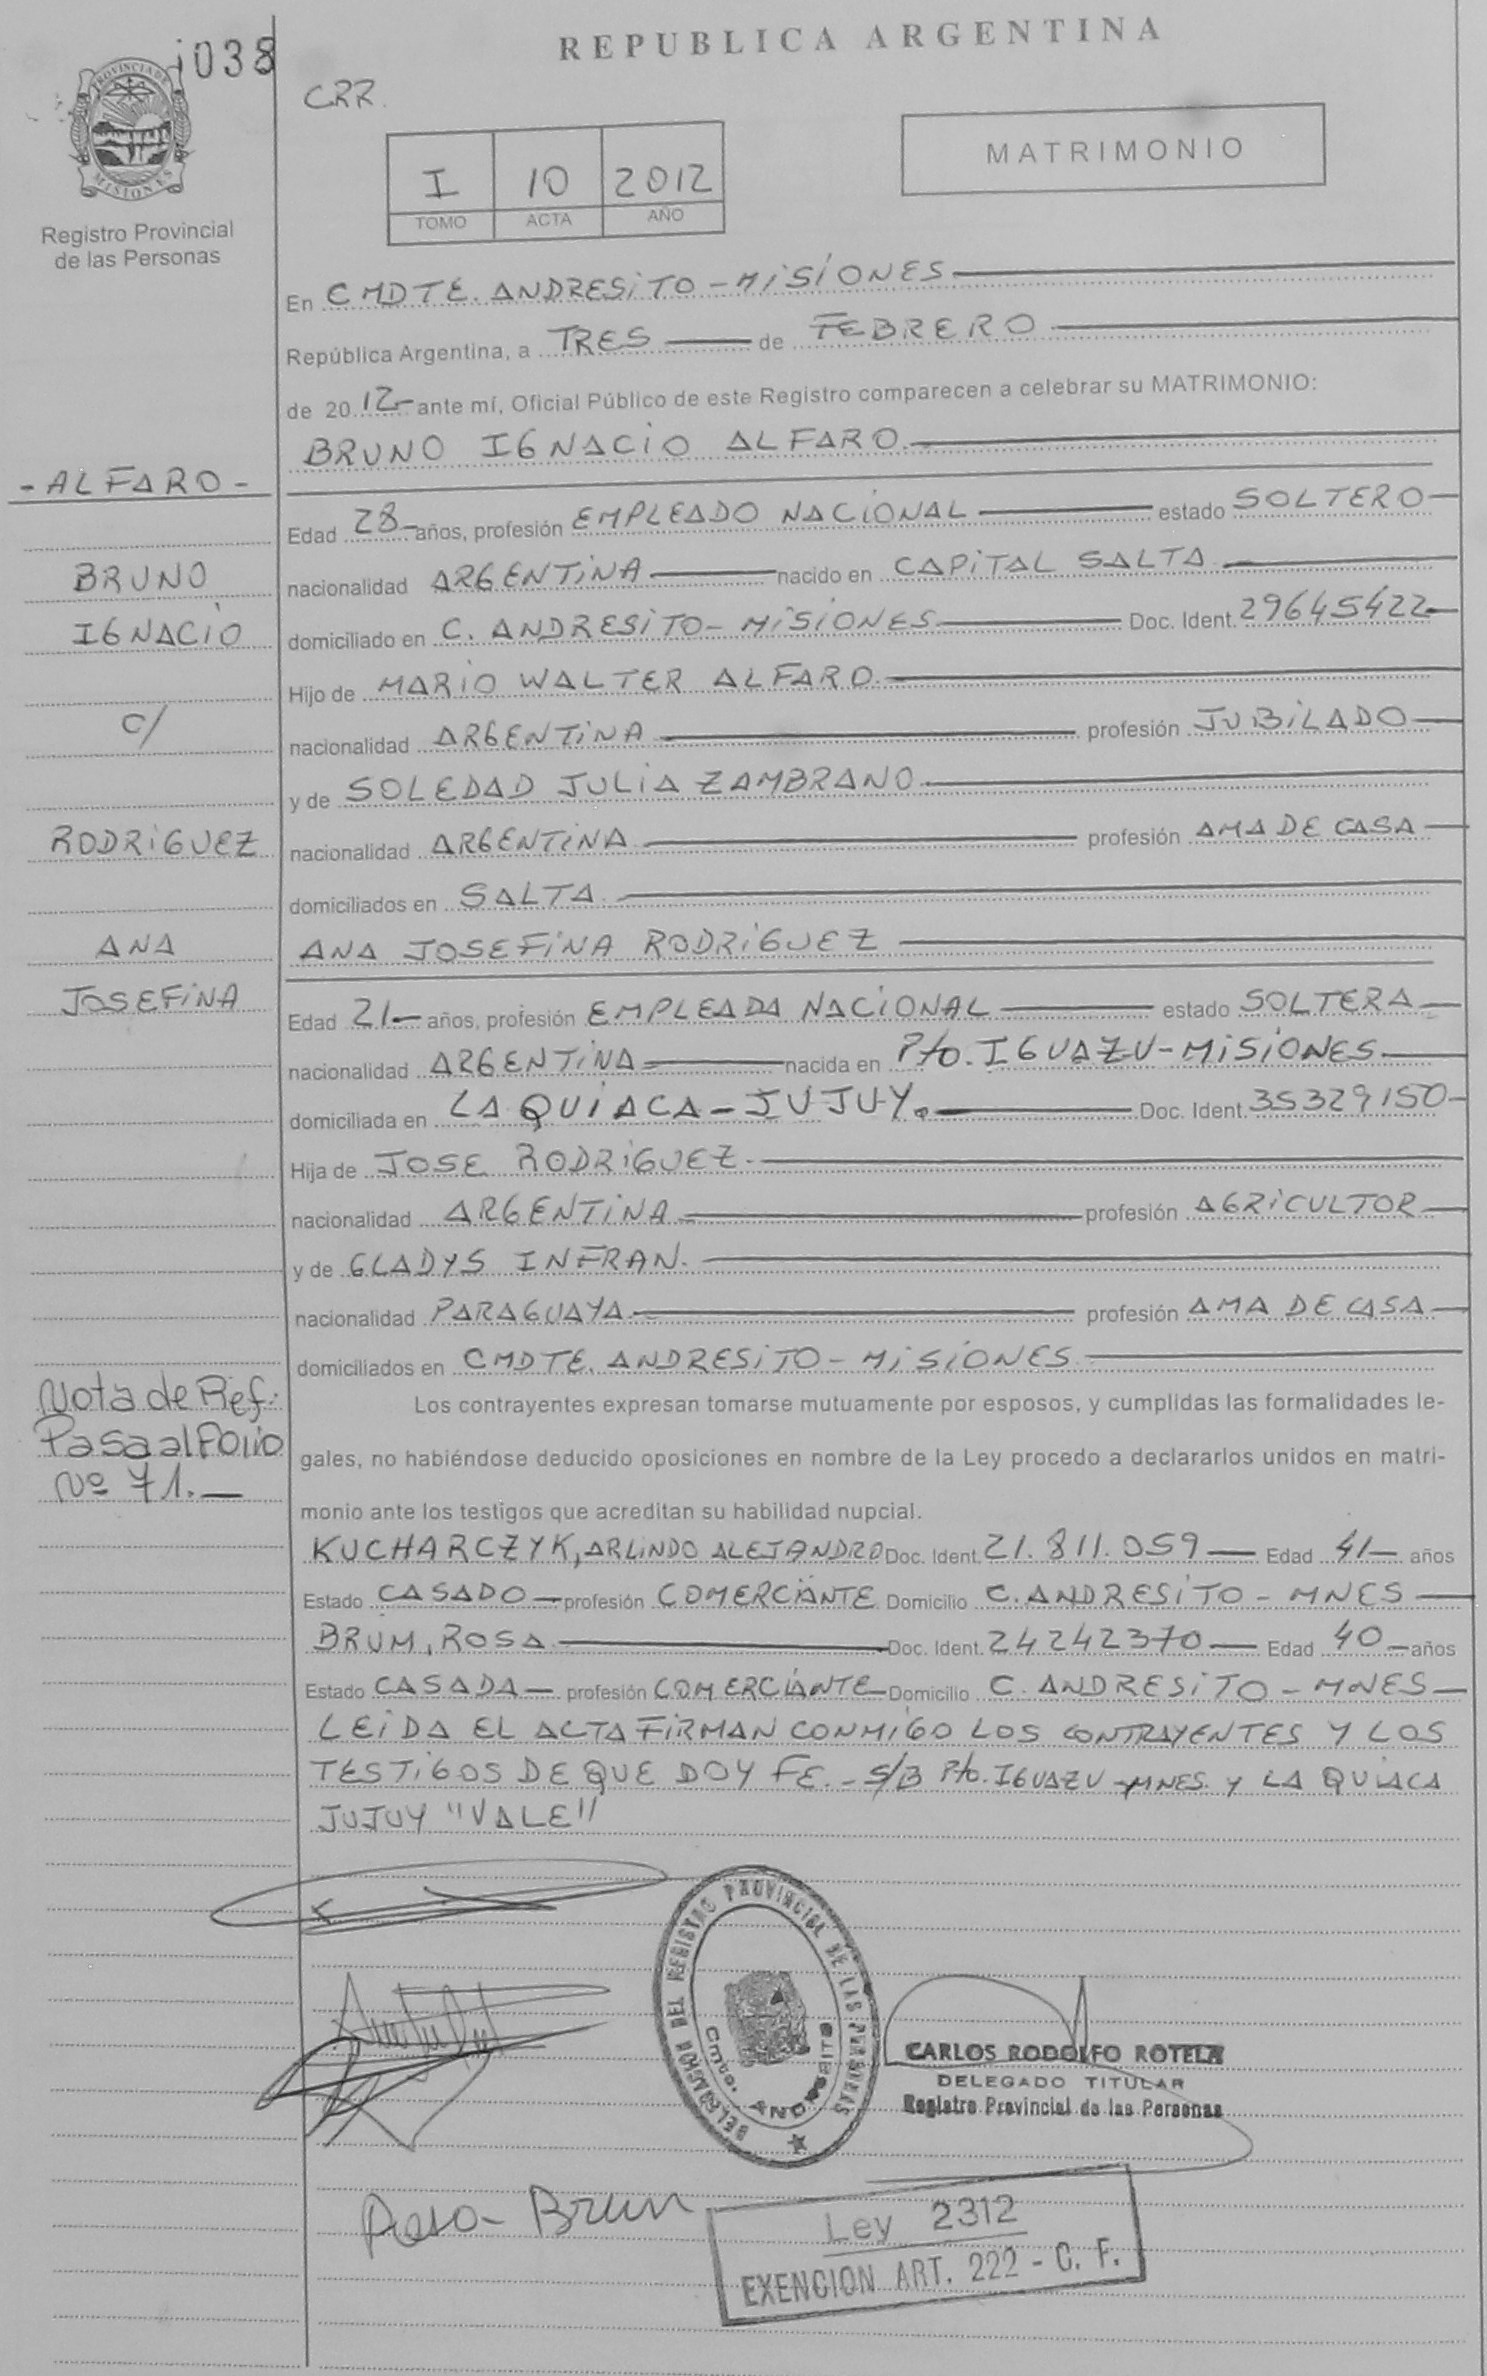 REPUBLICA ARGENTINA
1038
PROVINCIA DE
MISIONES
Registro Provincial
de las Personas
CRR.
MATRIMONIO
I 10 2012
TOMO ACTA AÑO
En CMDTE. ANDRESITO - MISIONES
República Argentina, a TRES de FEBRERO
de 20 12 ante mí, Oficial Público de este Registro comparecen a celebrar su MATRIMONIO:
BRUNO IGNACIO ALFARO.
- ALFARO -
Edad 28 años, profesión EMPLEADO NACIONAL estado SOLTERO
BRUNO
nacionalidad ARGENTINA nacido en CAPITAL SALTA
IGNACIO
domiciliado en C. ANDRESITO - MISIONES Doc. Ident. 29645422
Hijo de MARIO WALTER ALFARO.
C/
nacionalidad ARGENTINA profesión JUBILADO
y de SOLEDAD JULIA ZAMBRANO
RODRIGUEZ
nacionalidad ARGENTINA profesión AMA DE CASA
domiciliados en SALTA
ANA
ANA JOSEFINA RODRIGUEZ
JOSEFINA
Edad 21 años, profesión EMPLEADA NACIONAL estado SOLTERA
nacionalidad ARGENTINA nacida en Pto. IGUAZU - MISIONES
domiciliada en LA QUIACA - JUJUY. Doc. Ident. 35329150
Hija de JOSE RODRIGUEZ
nacionalidad ARGENTINA profesión AGRICULTOR
y de GLADYS INFRAN.
nacionalidad PARAGUAYA profesión AMA DE CASA
domiciliados en CMDTE. ANDRESITO - MISIONES
Nota de Ref:
Pasa al Folio
Nº 71.
Los contrayentes expresan tomarse mutuamente por esposos, y cumplidas las formalidades le-
gales, no habiéndose deducido oposiciones en nombre de la Ley procedo a declararlos unidos en matri-
monio ante los testigos que acreditan su habilidad nupcial.
KUCHARCZYK, ARLINDO ALEJANDRO Doc. Ident. 21.811.059 Edad 41 años
Estado CASADO profesión COMERCIANTE Domicilio C. ANDRESITO - MNES
BRUM, ROSA Doc. Ident. 24242370 Edad 40 años
Estado CASADA profesión COMERCIANTE Domicilio C. ANDRESITO - MNES
LEIDA EL ACTA FIRMAN CONMIGO LOS CONTRAYENTES Y LOS
TESTIGOS DE QUE DOY FE. - S/B Pto. IGUAZU - MNES. Y LA QUIACA
JUJUY "VALE"
DELEGACION DEL REGISTRO PROVINCIAL DE LAS PERSONAS
Cmte. ANDRESITO
CARLOS RODOLFO ROTELA
DELEGADO TITULAR
Registro Provincial de las Personas
Rosa Brum
Ley 2312
EXENCION ART. 222 - C. F.